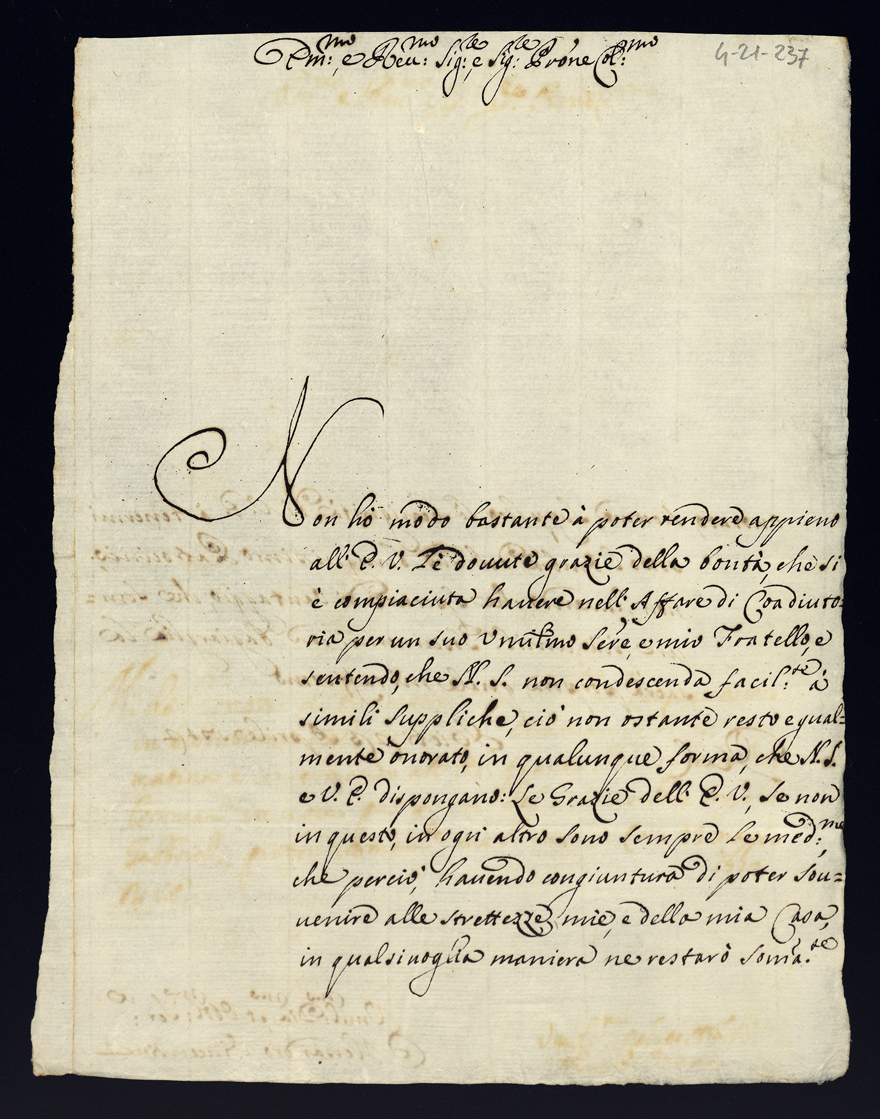 Em:mo e Reu:mo Sig:re, e Sig:re Prone Col:mo
4-21-237
Non hò modo bastante à poter rendere appieno
all' E. V. le douute grazie della bontà, che si
è compiaciuta hauere nell' Affare di Coadiuto=
ria per un suo Vmilmo Serẽ, e mio Fratello, e
sentendo, che N. S. non condescenda facil:te à
simili suppliche, ciò non ostante resto egual=
mente onorato, in qualunque forma, che N. S.
e V. E. dispongano: Le Grazie dell' E. V., se non
in questo, in ogni altro sono sempre le med:me,
che perciò, hauendo congiuntura di poter sou=
uenire alle strettezze mie, e della mia Casa,
in qualsiuoglia maniera ne restarò soma:te